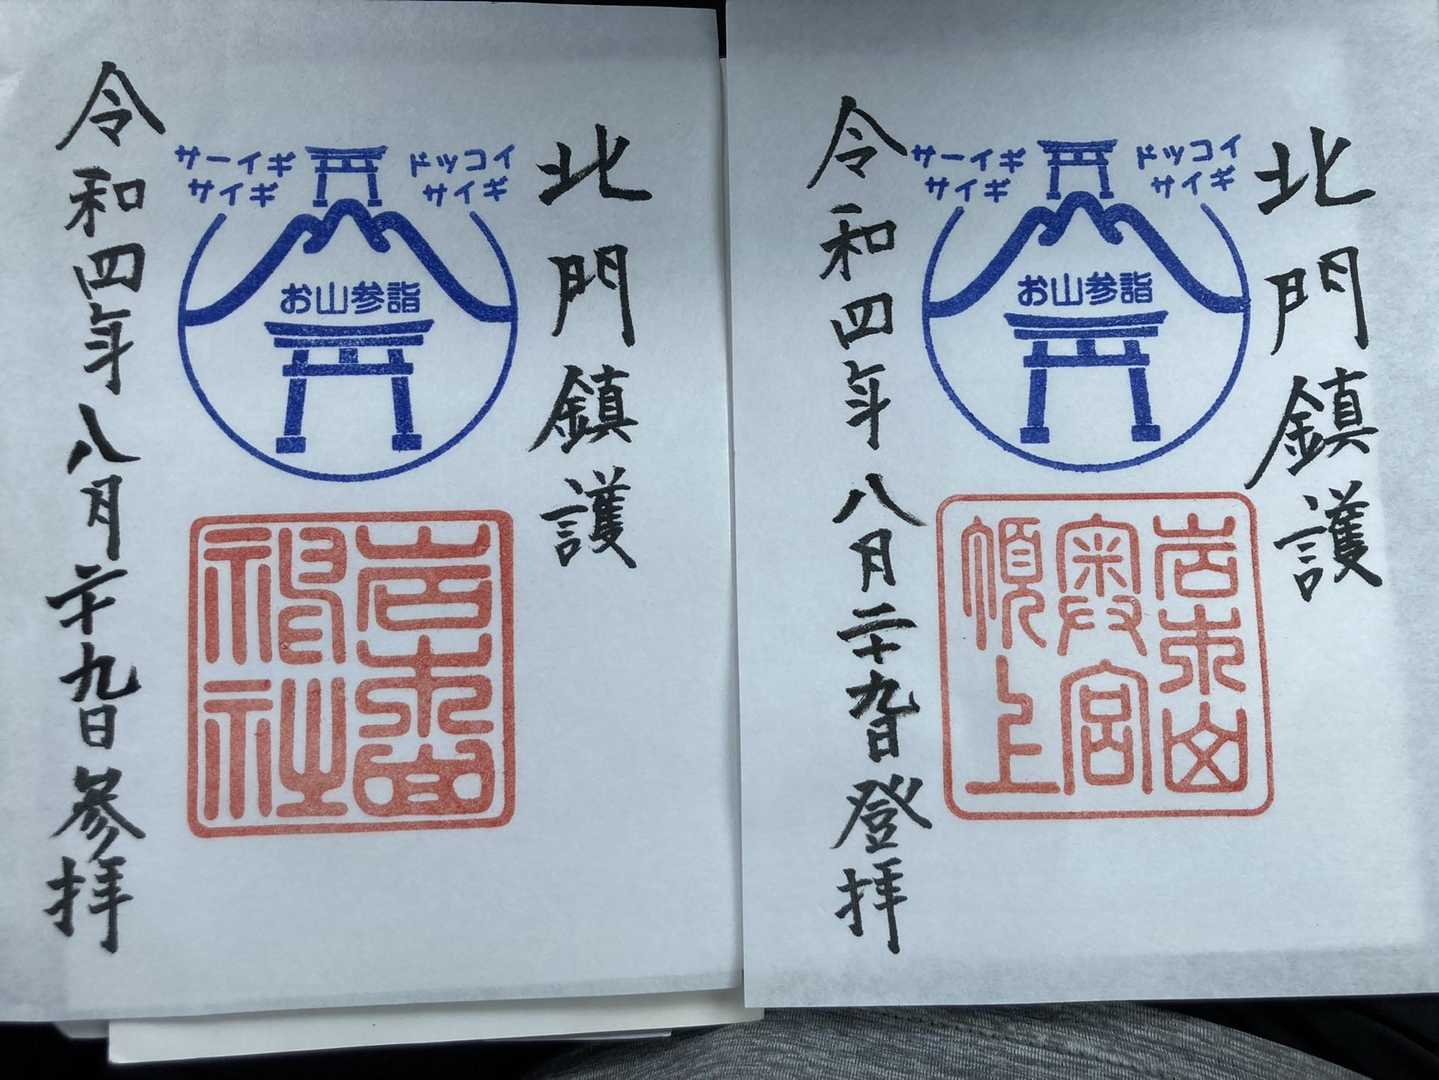 北門鎮護
サーイギ
サイギ
ドッコイ
サイギ
お山参詣
岩木山
神社
令和四年八月二十九日参拝
北門鎮護
サーイギ
サイギ
ドッコイ
サイギ
お山参詣
岩木山
奥宮
頂上
令和四年八月二十九日登拝